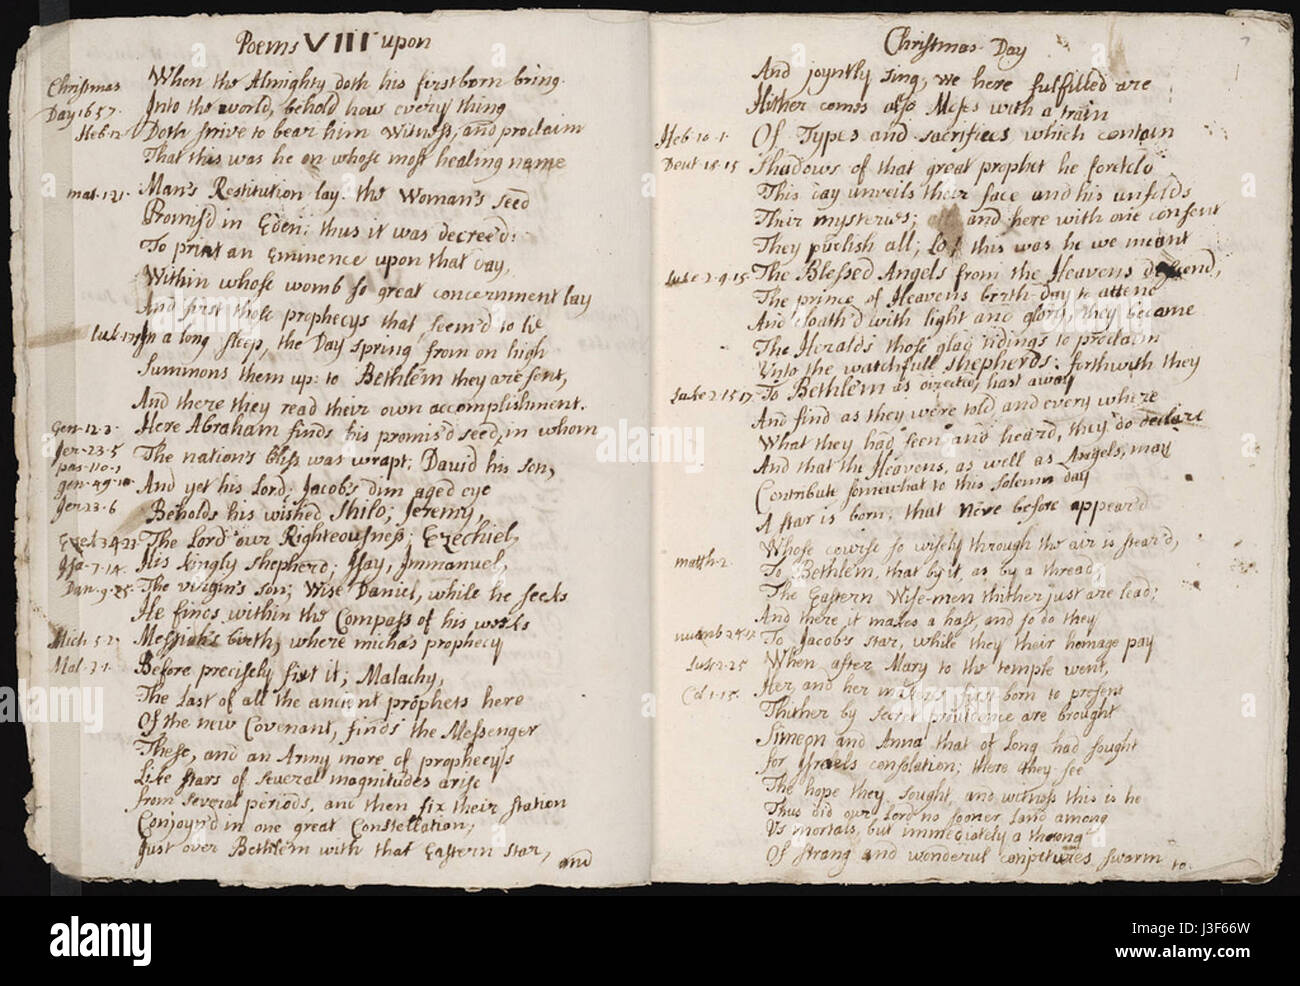 Poems VIII upon
Christmas Day 1657. When the Almighty doth his first born bring
Into the world, behold how every thing
Heb. 1. Doth strive to bear him witness, and proclaim
That this was he on whose most healing name
mat. 1. 21. Man's Restitution lay. the Woman's seed
Promis'd in Eden; thus it was decreed:
To print an Eminence upon that day,
Within whose womb so great concernment lay
And first those prophecys that seem'd to lie
In a long sleep, the Day spring from on high
Summons them up: to Bethlem they are sent,
And there they read their own accomplishment.
Gen. 12. 3. Here Abraham finds his promis'd seed, in whom
Jer. 23. 5 The nation's bliss was wrapt: David his son,
psa. 110. 1 And yet his Lord; Jacob's dim aged eye
gen. 49. 10 Beholds his wished Shilo; Jeremy,
Jer 23. 6 The Lord our Righteousness; Ezechiel,
Ezek 34. 23 His kingly shepherd; Isay, Immanuel,
Isa. 7. 14. The virgin's son; Wise Daniel, while he seeks
Dan. 9. 25. He finds within the Compass of his weeks
Mich. 5. 2. Messiah's birth, where micha's prophecy
Mal. 3. 1. Before precisely fixt it; Malachy,
The Last of all the ancient prophets here
Of the new Covenant, finds the Messenger
These, and an Army more of prophecys
Like stars of several magnitudes arise
from several periods, and then fix their station
Conjoyn'd in one great Constellation,
Just over Bethlem with that Eastern star,
and
Christmas Day
7
And joyntly sing, we here fulfilled are
Hither comes also Moses with a train
Heb. 10. 1. Of Types and sacrifices which contain
Deut 18. 15 Shadows of that great prophet he foretold
This day unveils their face and his unfolds
Their mysteries; and here with one consent
They publish all; Lo! this was he we meant
Luke 2. 9. 15. The Blessed Angels from the Heavens descend,
The prince of Heavens birth-day to attend
And cloath'd with light and glory, they became
The Heralds those glad tidings to proclaim
Unto the watchfull shepherds: forthwith they
Luke 2. 15. 17. To Bethlem as directed hast away
And find as they were told and every where
What they had seen and heard, they do declare
And that the Heavens, as well as Angels, may
Contribute somewhat to this solemn day
A star is born, that nere before appear'd
Whose course so wisely through the air is stear'd,
matth. 2. To Bethlem, that by it, as by a thread
The Eastern Wise-men thither just are lead;
And there it makes a hast, and so do they
numb 24. 17. To Jacob's star, while they their homage pay
Luk. 2. 25 When after Mary to the temple went,
Col. 1. 15. Her, and her maker's first-born to present
Thither by secret providence are brought
Simeon and Anna that of Long had sought
for Israels consolation; there they see
The hope they sought, and witness this is he
Thus did our Lord no sooner land among
Us mortals, but immediately a throng
Of strang and wonderful conjectures swarm
to
alamy
alamy stock photo
J3F66W
www.alamy.com